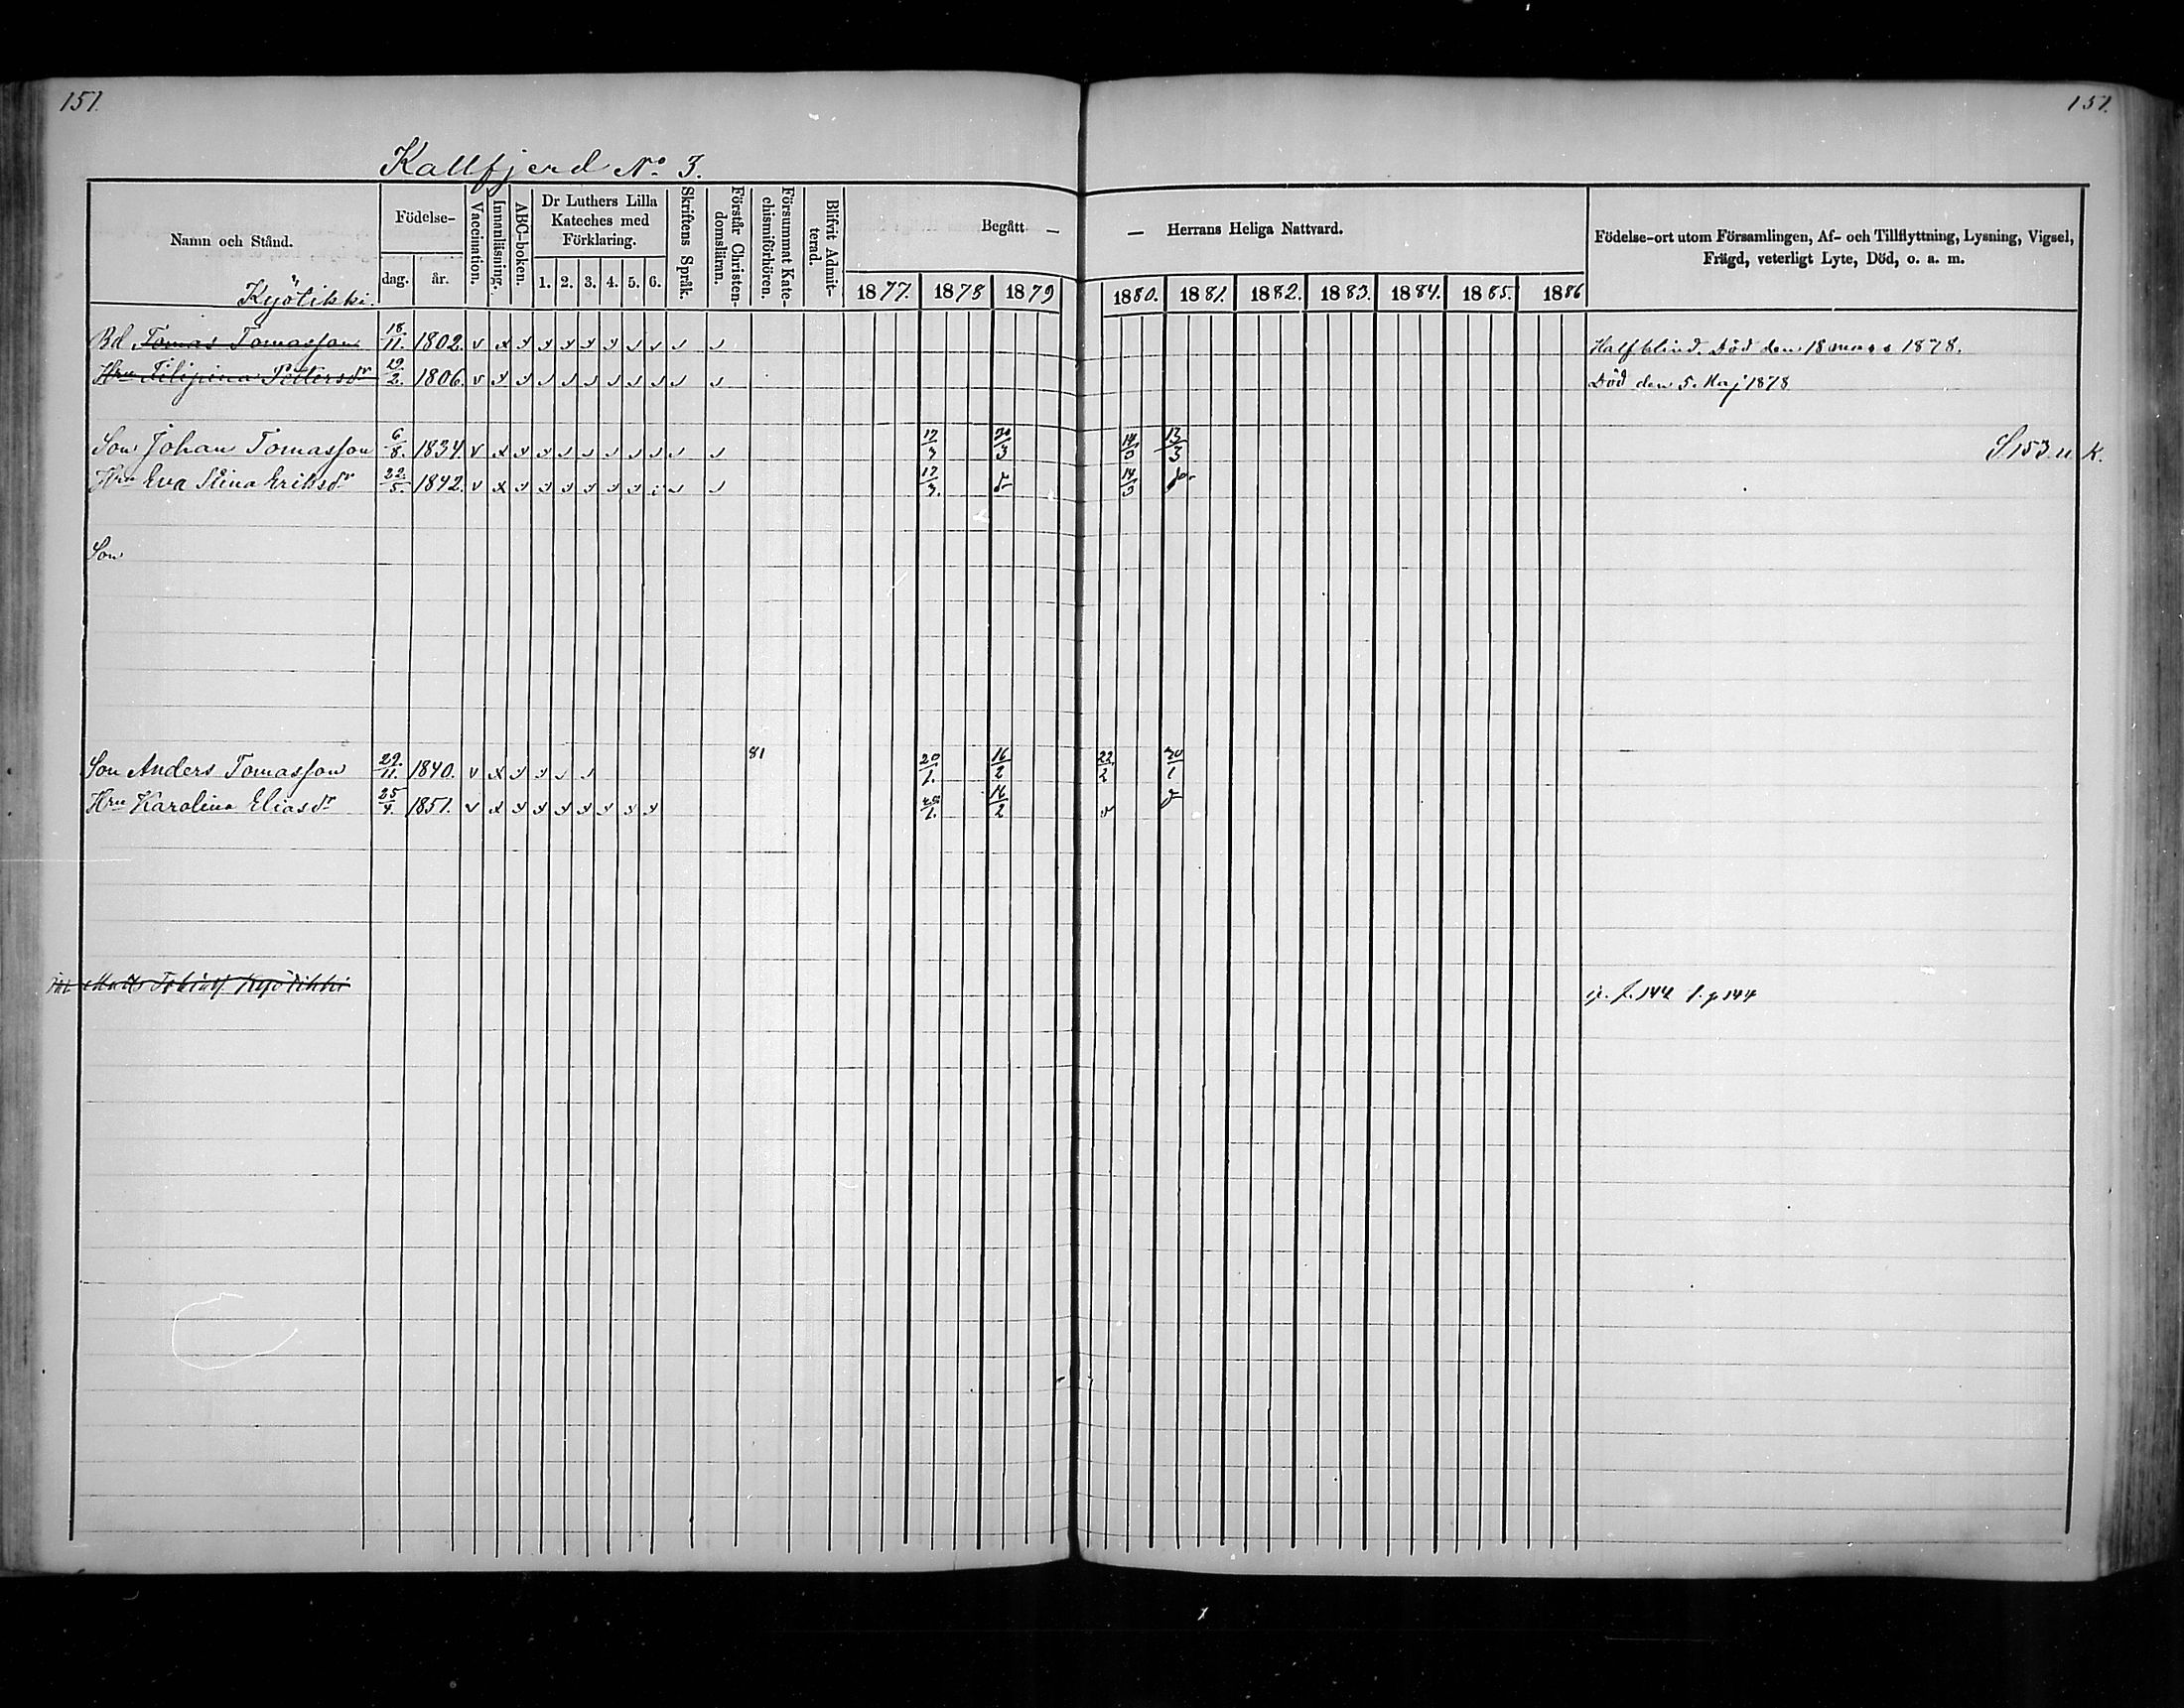 151.
151.
Kallfjerd No 3.
Namn och Stånd.
Födelse-
dag. år.
Vaccination.
Innanläsning.
ABC-boken.
Dr Luthers Lilla
Kateches med
Förklaring.
1. 2. 3. 4. 5. 6.
Skriftens Språk.
Förstår Christen-
domsläran.
Försummat Kate-
chismiförhören.
Blifvit Admit-
terad.
Begått — — Herrans Heliga Nattvard.
1877. 1878 1879 1880. 1881. 1882. 1883. 1884. 1885. 1886
Födelse-ort utom Församlingen, Af- och Tillflyttning, Lysning, Vigsel,
Frägd, veterligt Lyte, Död, o. a. m.
Kyötikki.
Bd Tomas Tomasson 18/11. 1802. v x v v v v v v v v v Halfblind. Död den 18 mars 1878.
Hru Filipina Pettersdr 19/2. 1806. v v v v v v v v v v v Död den 5. Maj 1878
Son Johan Tomasson 6/8. 1834. v x v v v v v v v v v 17/3 30/3 14/3 13/3 S. 153. u. K.
Hru Eva Stina Eriksdr 22/5. 1842. v x v v v v v v v v v 17/3. 14/3
Son
Son Anders Tomasson 29/11. 1840. v x v v v v 81 20/1. 16/2 22/2 30/1
Hru Karolina Eliasdr 25/4. 1851. v x v v v v v v v 20/1. 16/2
Matts Kyötikki 144 144